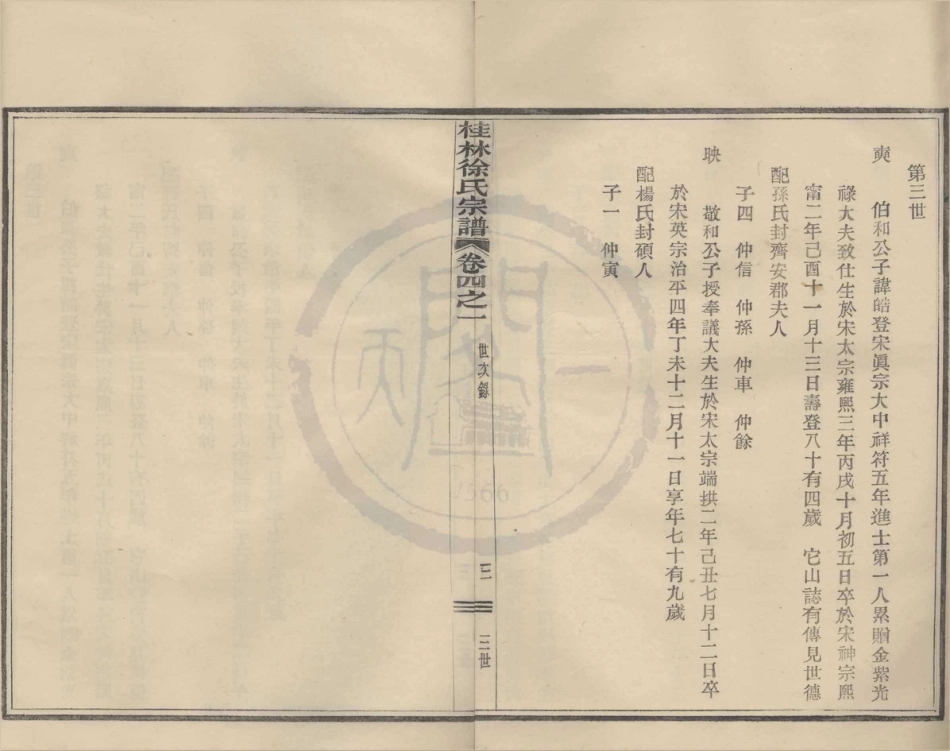 第三世
奭　伯和公子諱皓登宋眞宗大中祥符五年進士第一人累贈金紫光
祿大夫致仕生於宋太宗雍熙三年丙戌十月初五日卒於宋神宗熙
甯二年己酉十一月十三日壽登八十有四歲　它山誌有傳見世德
配孫氏封齊安郡夫人
子四　仲信　仲孫　仲車　仲餘
映　敬和公子授奉議大夫生於宋太宗端拱二年己丑七月十二日卒
於宋英宗治平四年丁未十二月十一日享年七十有九歲
配楊氏封碩人
子一　仲寅
桂林徐氏宗譜　卷四之一　世次錄　三　三世
天一閣
1566